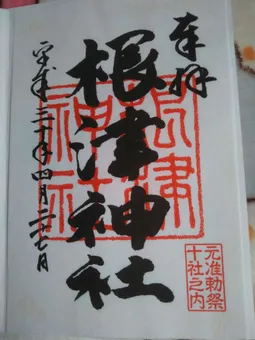 奉拝
根津神社
根津
神社
平成三十年四月二十七日
元准勅祭
十社之内